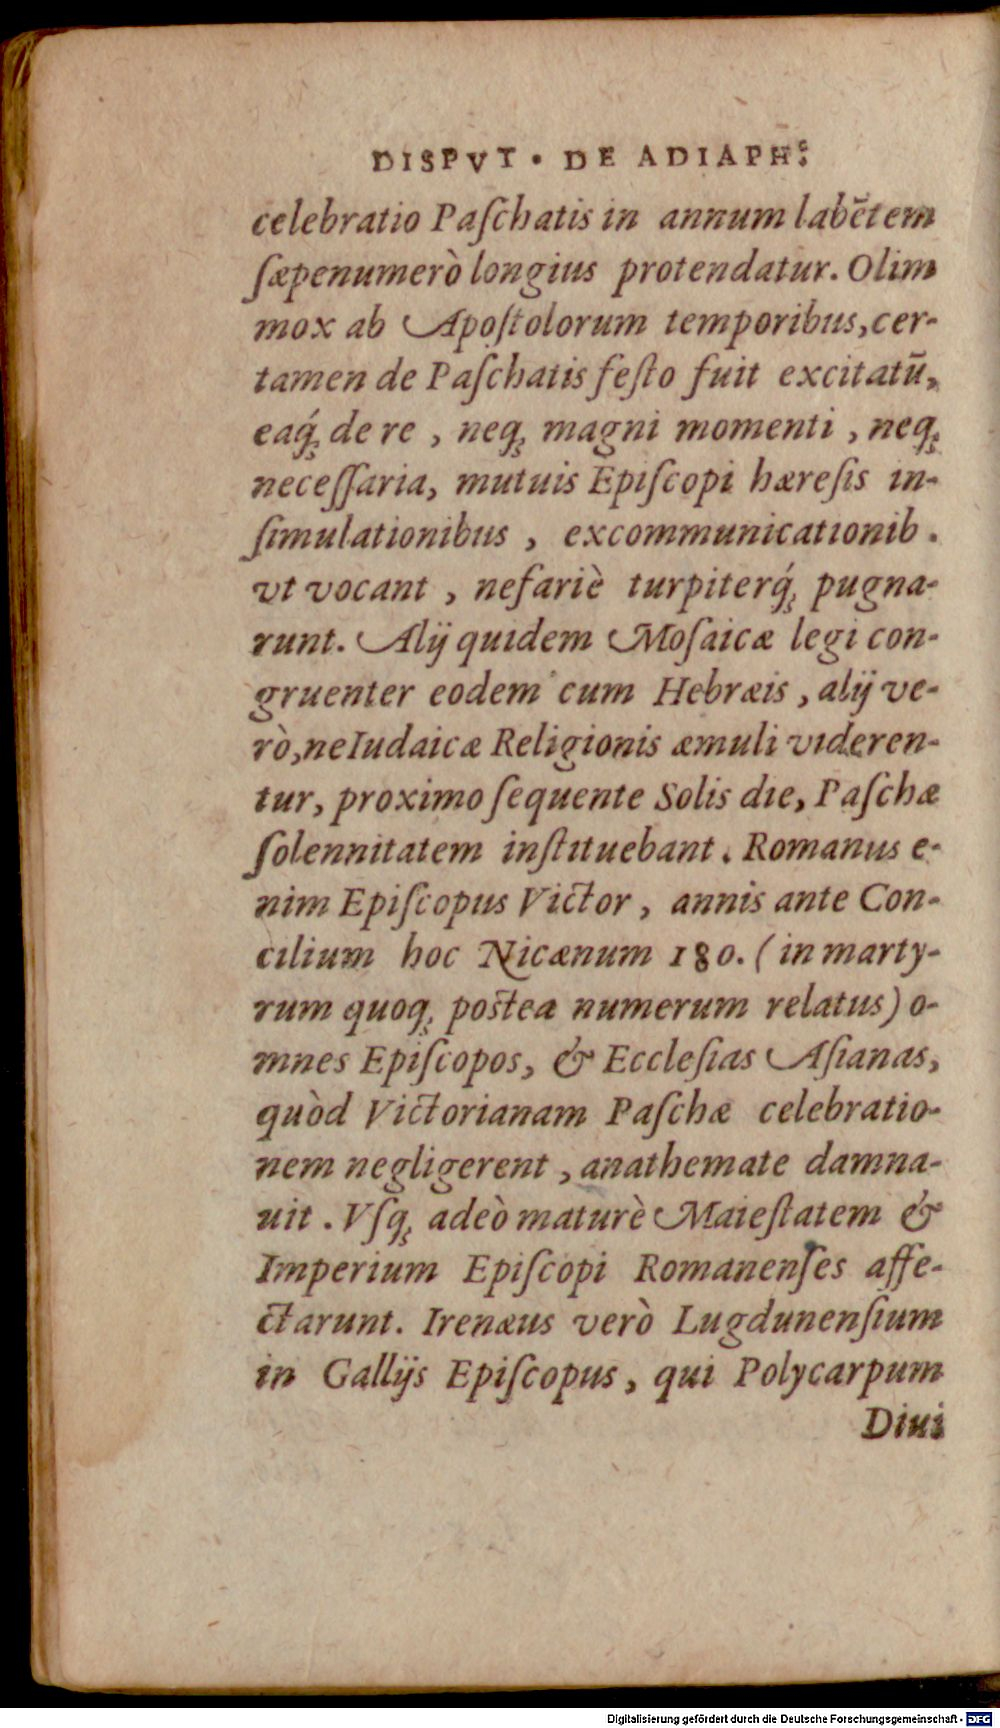 DISPVT. DE ADIAPH:
celebratio Paſchatis in annum labētem
ſæpenumerò longius protendatur. Olim
mox ab Apoſtolorum temporibus, cer-
tamen de Paſchatis feſto fuit excitatū,
eaq́ꝫ de re, neqꝫ magni momenti, neqꝫ
neceſſaria, mutuis Epiſcopi hæreſis in-
ſimulationibus, excommunicationib.
vt vocant, nefariè turpiterq́ꝫ pugna-
runt. Alij quidem Moſaicæ legi con-
gruenter eodem cum Hebræis, alij ve-
rò, ne Iudaicæ Religionis æmuli videren-
tur, proximo ſequente Solis die, Paſchæ
ſolennitatem inſtituebant. Romanus e-
nim Epiſcopus Victor, annis ante Con-
cilium hoc Nicænum 180. (in marty-
rum quoqꝫ poſtea numerum relatus) o-
mnes Epiſcopos, & Eccleſias Aſianas,
quòd Victorianam Paſchæ celebratio-
nem negligerent, anathemate damna-
uit. Vſqꝫ adeò maturè Maieſtatem &
Imperium Epiſcopi Romanenſes affe-
ctarunt. Irenæus verò Lugdunenſium
in Gallijs Epiſcopus, qui Polycarpum
Diui
Digitalisierung gefördert durch die Deutsche Forschungsgemeinschaft - DFG